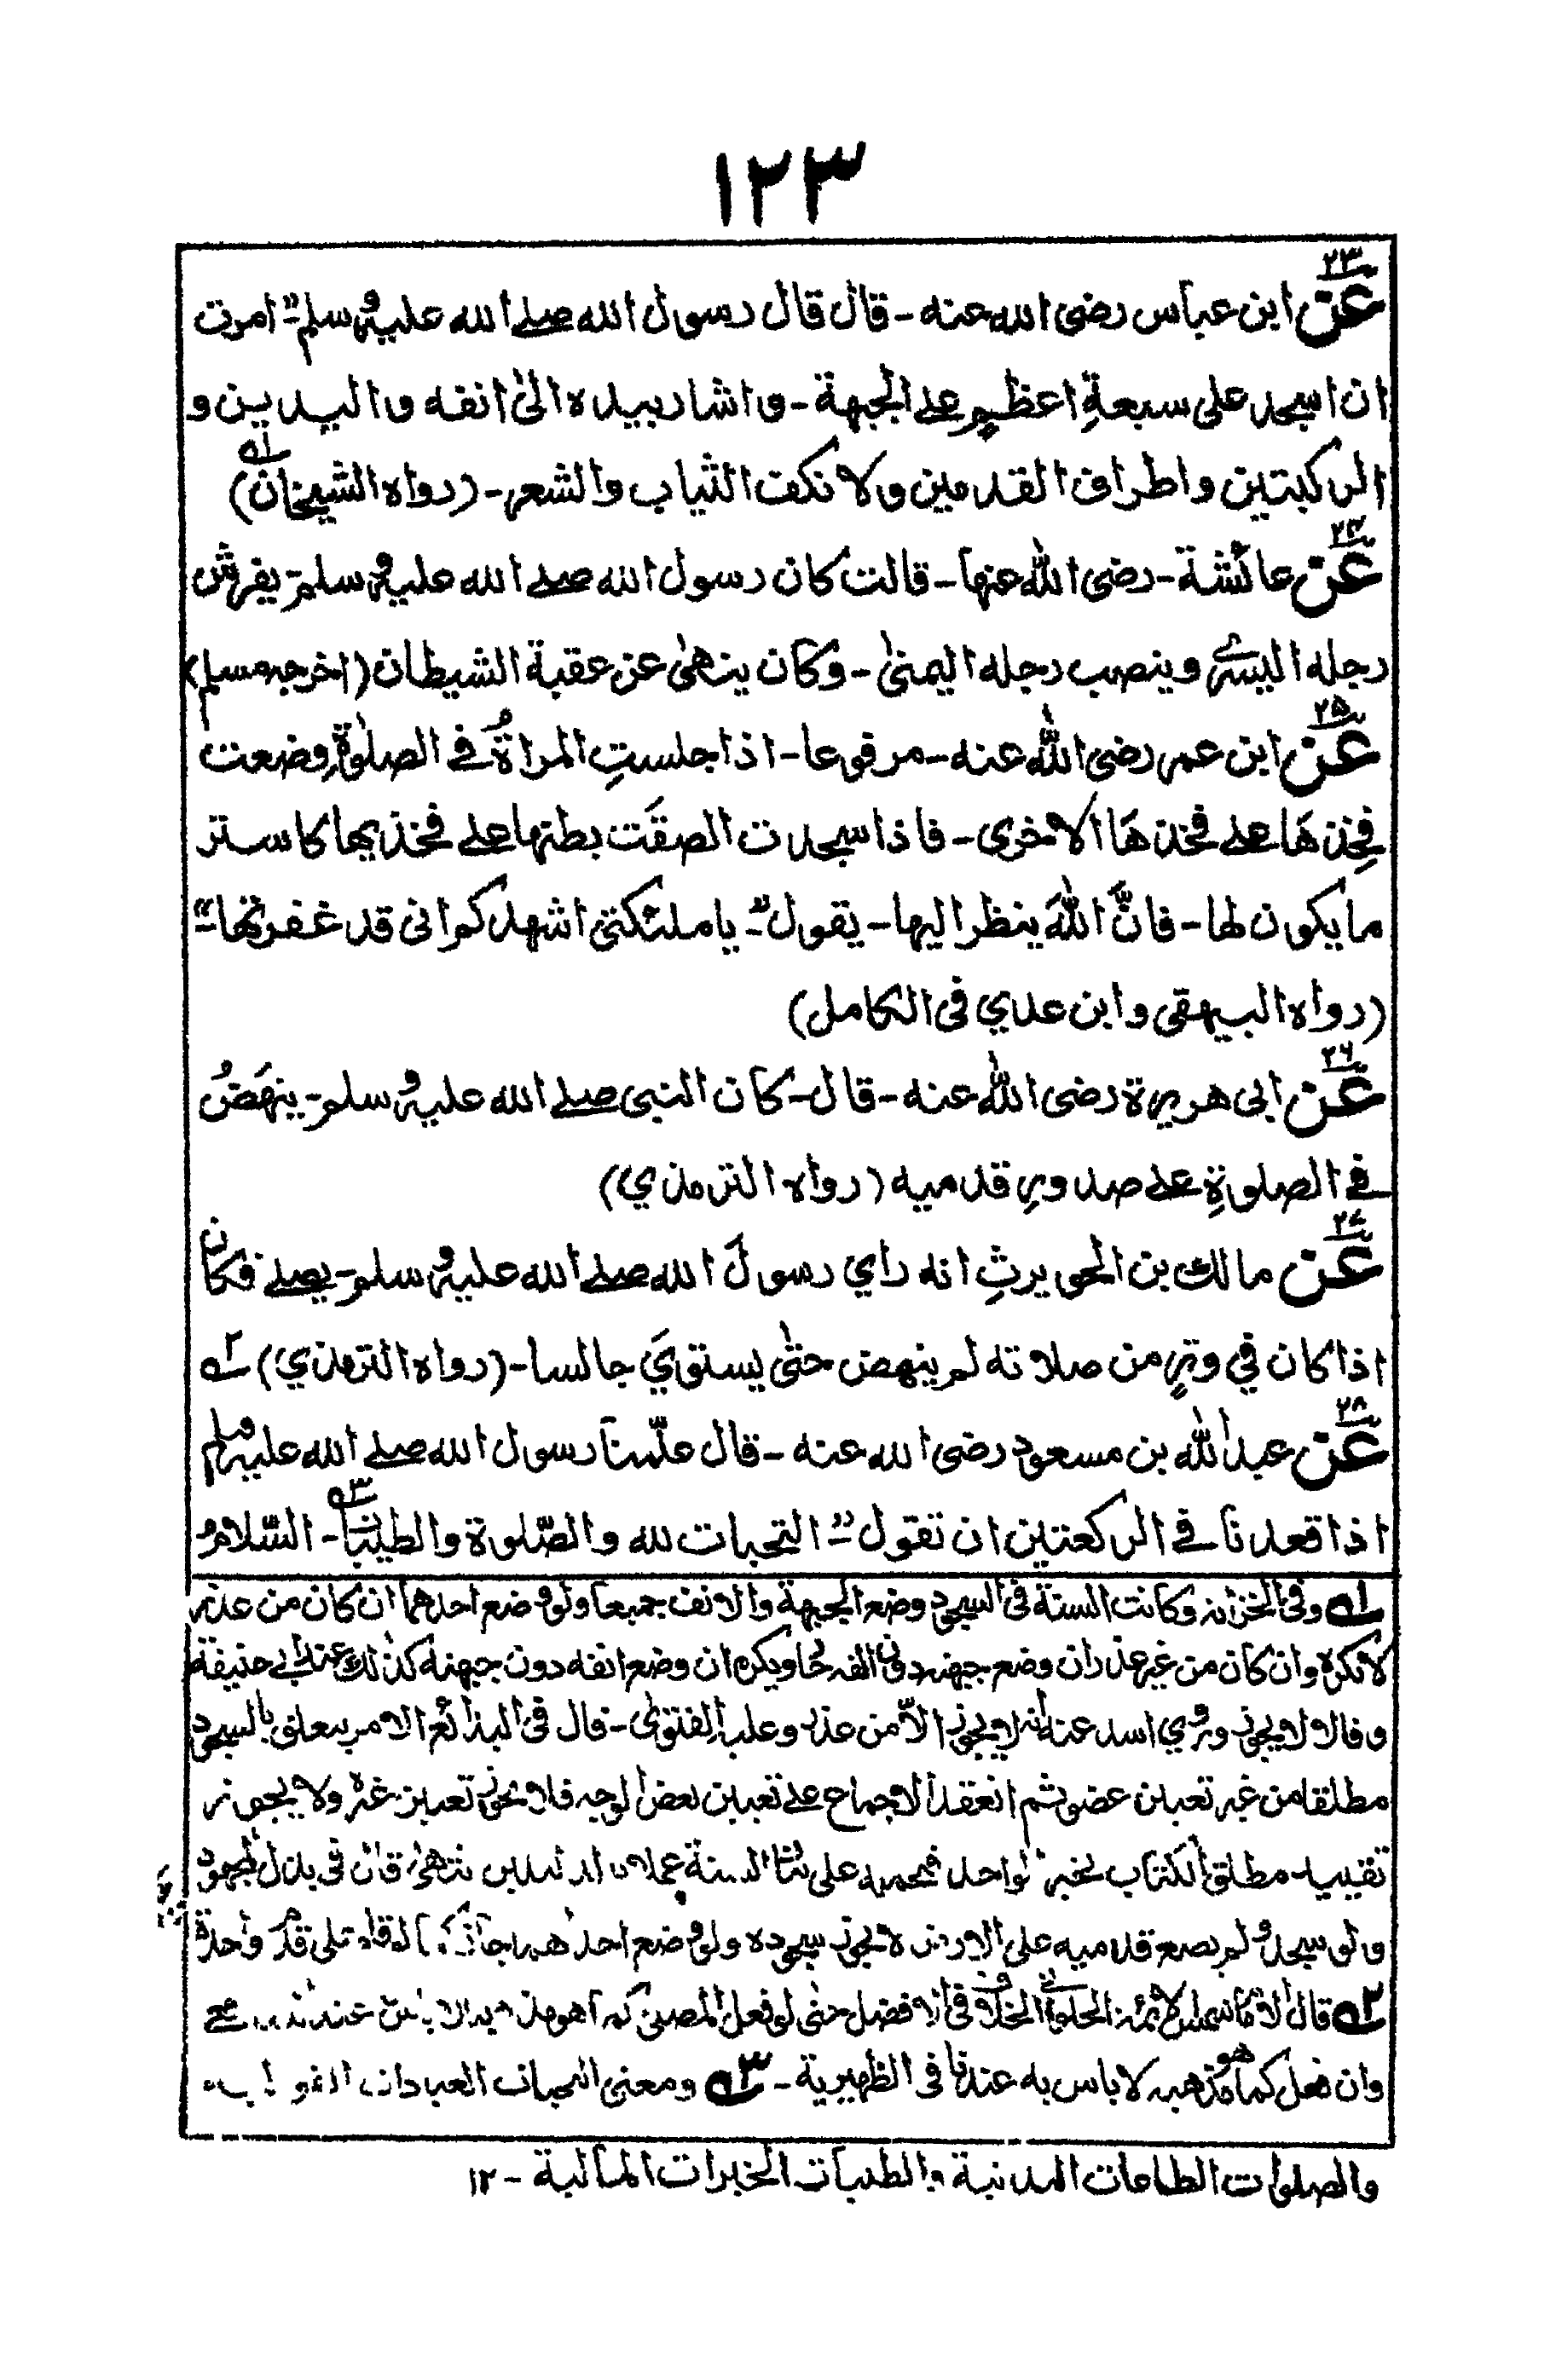 ١٢٣
٢٣
عن ابن عباس رضی الله عنه - قال قال رسول الله صلے الله علیه وسلم " امرت
ان اسجد علی سبعةِ اعظمٍ علے الجبهة - واشار بیده الیٰ انفه والیدین و
الرکبتین واطراف القدمین ولا نکفت الثیاب والشعر - (رواه الشیخان) ١ه
٢٤
عن عائشة - رضی الله عنها - قالت کان رسول الله صلے الله علیه وسلم - یفرش
رجله الیسرے وینصب رجله الیمنیٰ - وکان ینهیٰ عن عقبة الشیطان (اخرجه مسلم)
٢٥
عن ابن عمر رضی الله عنه - مرفوعا - اذا جلستِ المراةُ فے الصلوٰةِ وضعت
فخِذهَا علے فخذهَا الاخری - فاذا سجدت الصقَت بطنها علے فخذیها کاستر
مایکون لها - فانَّ اللهَ ینظر الیها - یقول " یا ملئکتی اشهدکم انی قد غفرتها "
(رواه البیهقی وابن عدي فی الکامل)
٢٦
عن ابی هریرة رضی الله عنه - قال - کان النبی صلے الله علیه وسلم - ینهَضُ
فے الصلوةِ علے صدورِ قدمیه (رواه الترمذي)
٢٧
عن مالك بن الحویرثِ انه راي رسولَ الله صلے الله علیه وسلم - یصلے فکان
اذا کان في وترٍ من صلاته لم ینهض حتیٰ یستويَ جالسا - (رواه الترمذي) ٢ه
٢٨
عن عبد الله بن مسعود رضی الله عنه - قال علّمنا رسول الله صلے الله علیه وسلم
اذا قعدنا فے الرکعتین ان تقول " التحیات لله والصّلوة والطیبات ٣ه - السّلامُ
١ه وفی الخزانه وکانت السنة فی السجود وضع الجبهة والانف جمیعا ولو وضع احدهما ان کان من عذر
لا یکره وان کان من غیر عذر ان وضع جبهته دون انفه یکره ان وضع انفه دون جبهته کذلك عند ابی حنیفة
وقالا لا یجوز وروي اسد عنه انه لا یجوز الاّ من عذر وعلیه الفتویٰ - قال فی البدائع الامر یتعلق بالسجود
مطلقا من غیر تعیین عضو ثم انعقد الاجماع علے تعیین بعض الوجه فلا یجوز تعیین غیره ولا یجوز
تقیید مطلق الکتاب بخبر الواحد فیحمله علی السنة عملا بالدلیلین انتهیٰ قال فی بذل المجهود
ولو سجد ولم یضع قدمیه علی الارض لا یجوز سجوده ولو وضع احدهما جاز قدم واحدة
٢ه قال شمس الائمة الحلوانی الخلاف فی الافضل حتی لو فعل المصلی کما هو لا باس عندنا
وان فعل کما هو مذهبه لا باس به عندنا فی الظهیریة - ٣ه ومعنی التحیات العبادات
والصلوات الطاعات البدنیة والطیبات الخیرات المالیة - ١٢